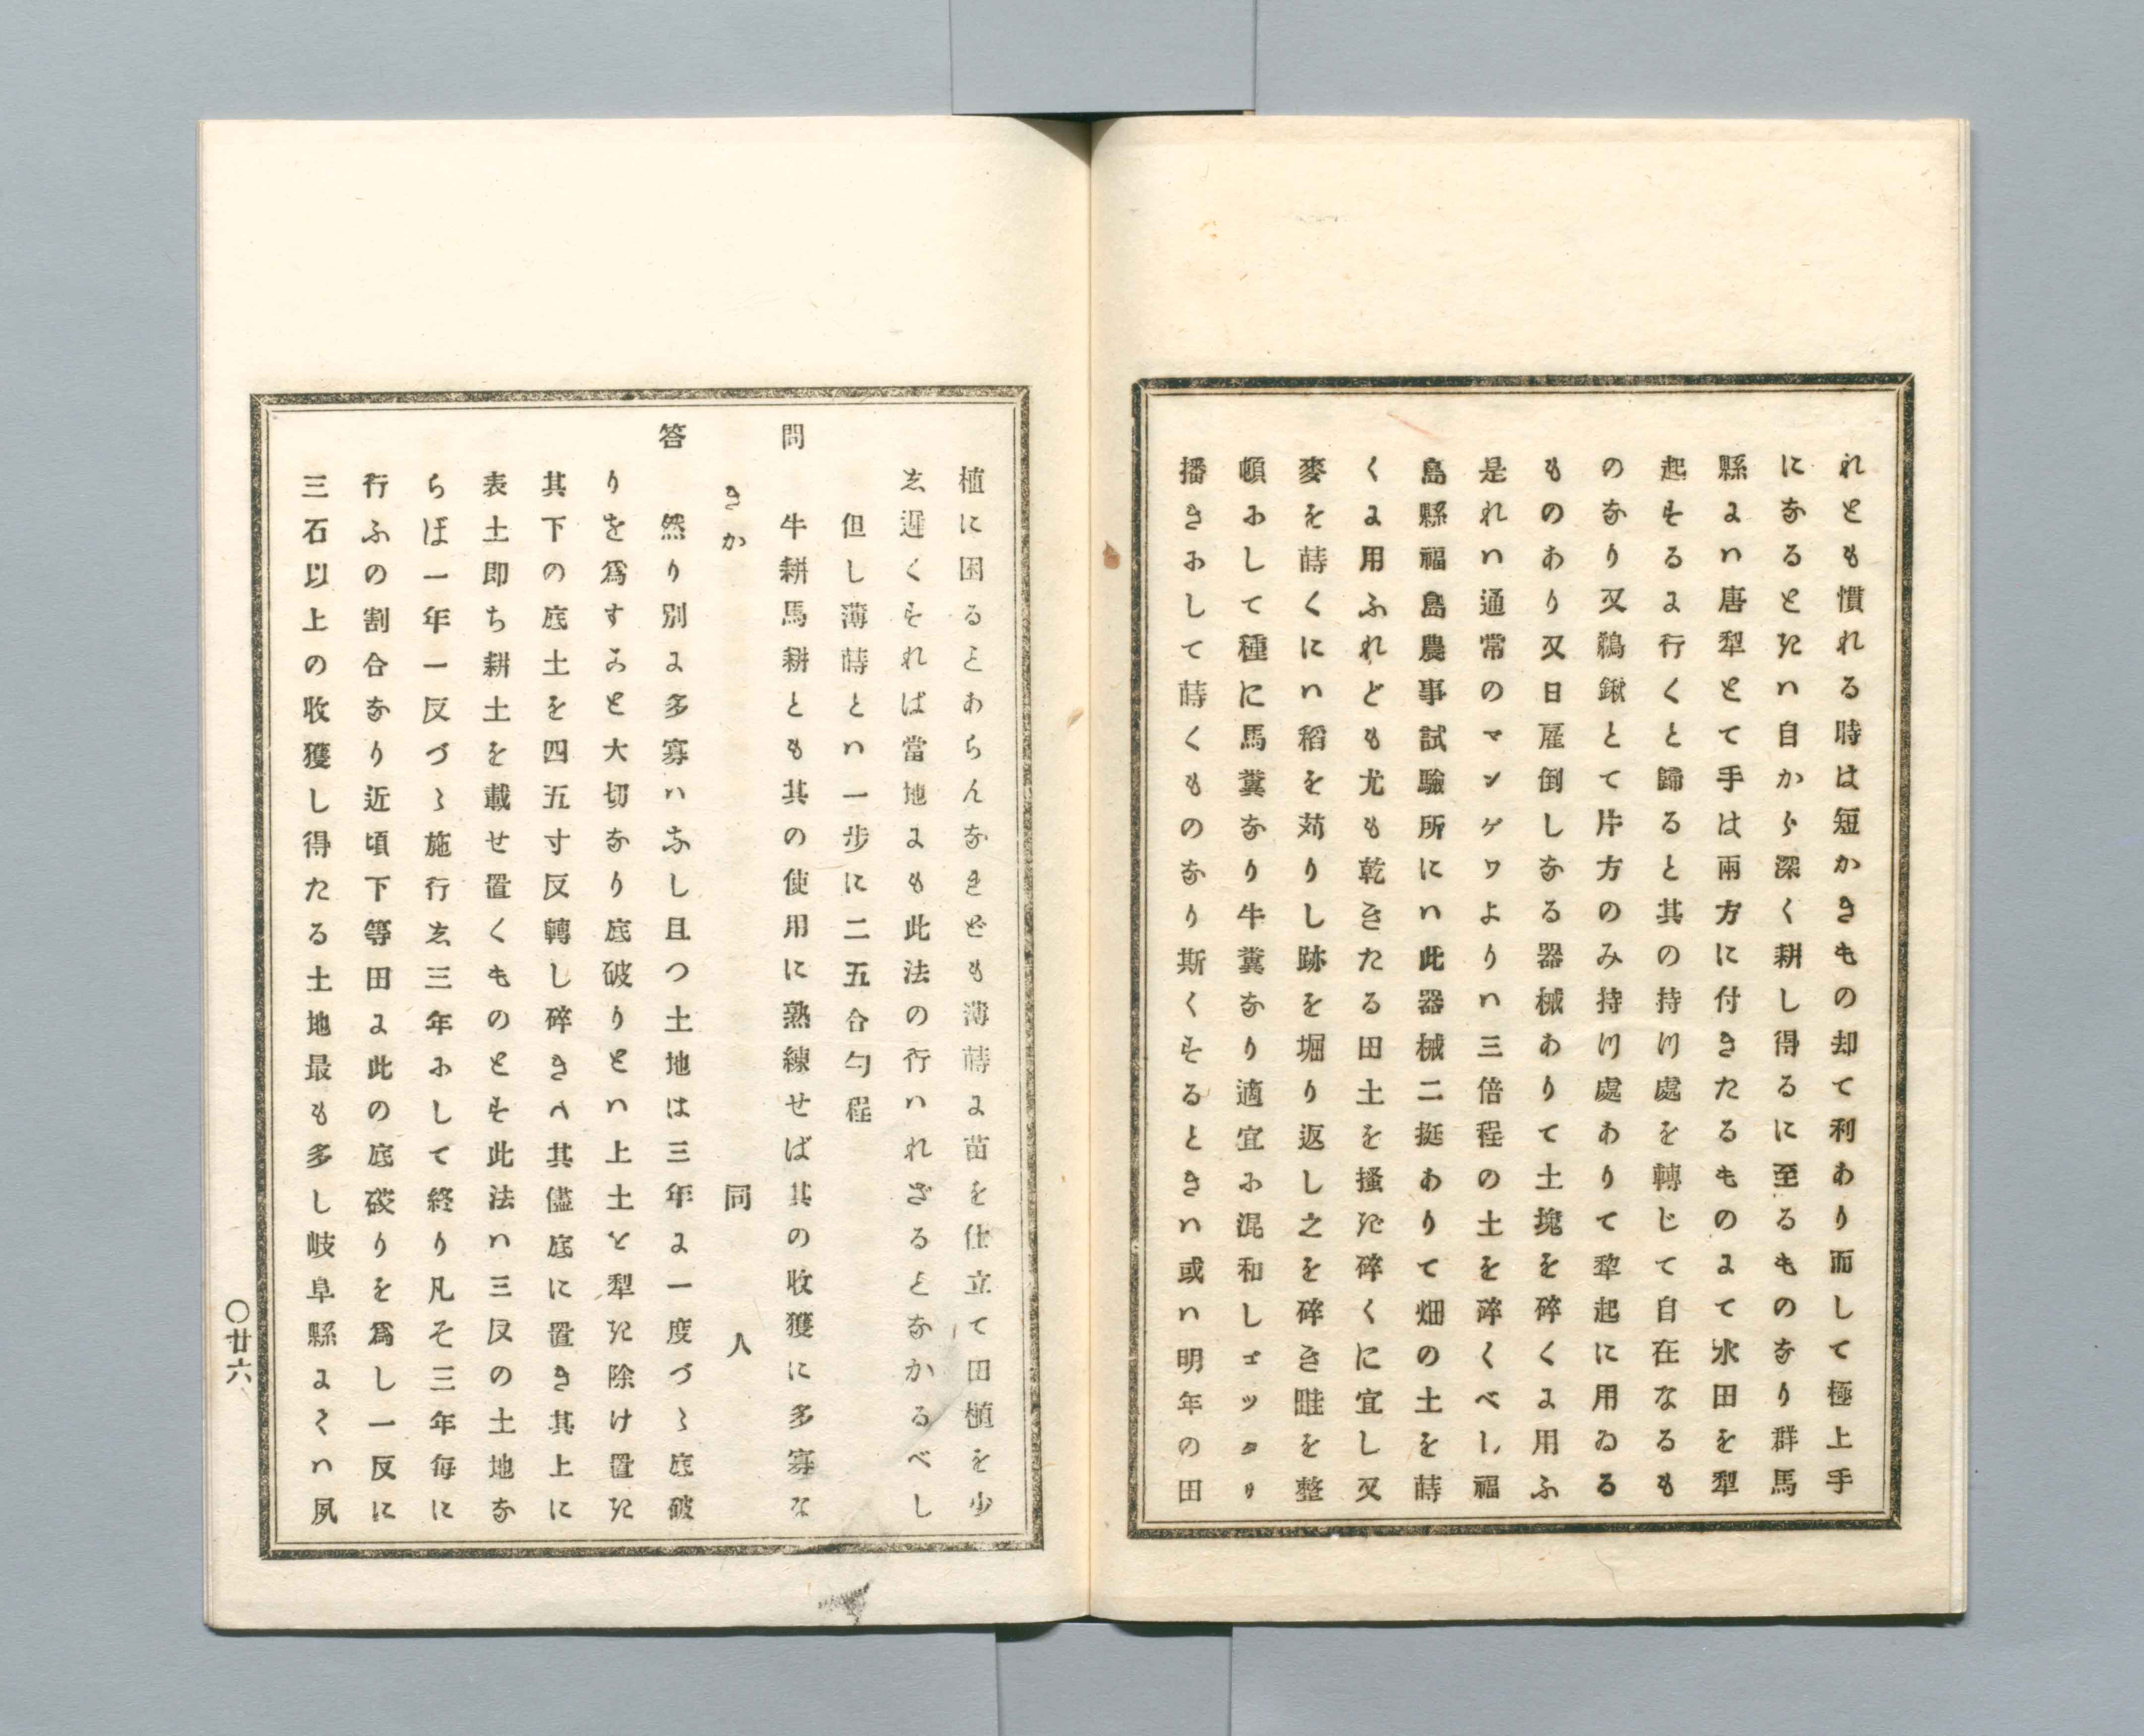 れども慣れる時は短かきもの却て利あり而して極上手
になるときハ自から深く耕し得るに至るものなり群馬
縣にハ唐犁とて手は兩方に付きたるものにて水田を犁
起するに行くと歸ると其の持つ處を轉じて自在なるも
のなり又鵜鍬とて片方のみ持つ處ありて犂起に用ゐる
ものあり又日雇倒しなる器械ありて土塊を碎くに用ふ
是れハ通常のマンゲワよりハ三倍程の土を碎くべし福
島縣福島農事試驗所にハ此器械二挺ありて畑の土を蒔
くに用ふれども尤も乾きたる田土を搔き碎くに宜し又
麥を蒔くにハ稻を苅りし跡を堀り返し之を碎き畦を整
頓にして種に馬糞なり牛糞なり適宜に混和しゴッタリ
播きにして蒔くものなり斯くするときハ或ハ明年の田
植に困ることあらんなきども薄蒔に苗を仕立て田植を少
し遲くすれば當地にも此法の行ハれざることなかるべし
但し薄蒔とハ一步に二五合勺程
問 牛耕馬耕とも其の使用に熟練せば其の收獲に多寡な
きか 同人
答 然り別に多寡ハなし且つ土地は三年に一度づゝ底破
りを爲すこと大切なり底破りとハ上土を犁き除け置き
其下の底土を四五寸反轉し碎きへ其儘底に置き其上に
表土即ち耕土を載せ置くものとす此法ハ三反の土地な
らば一年一反づゝ施行し三年にして終り凡そ三年毎に
行ふの割合なり近頃下等田に此の底破りを爲し一反に
三石以上の收獲し得たる土地最も多し岐阜縣にてハ夙
〇廿六